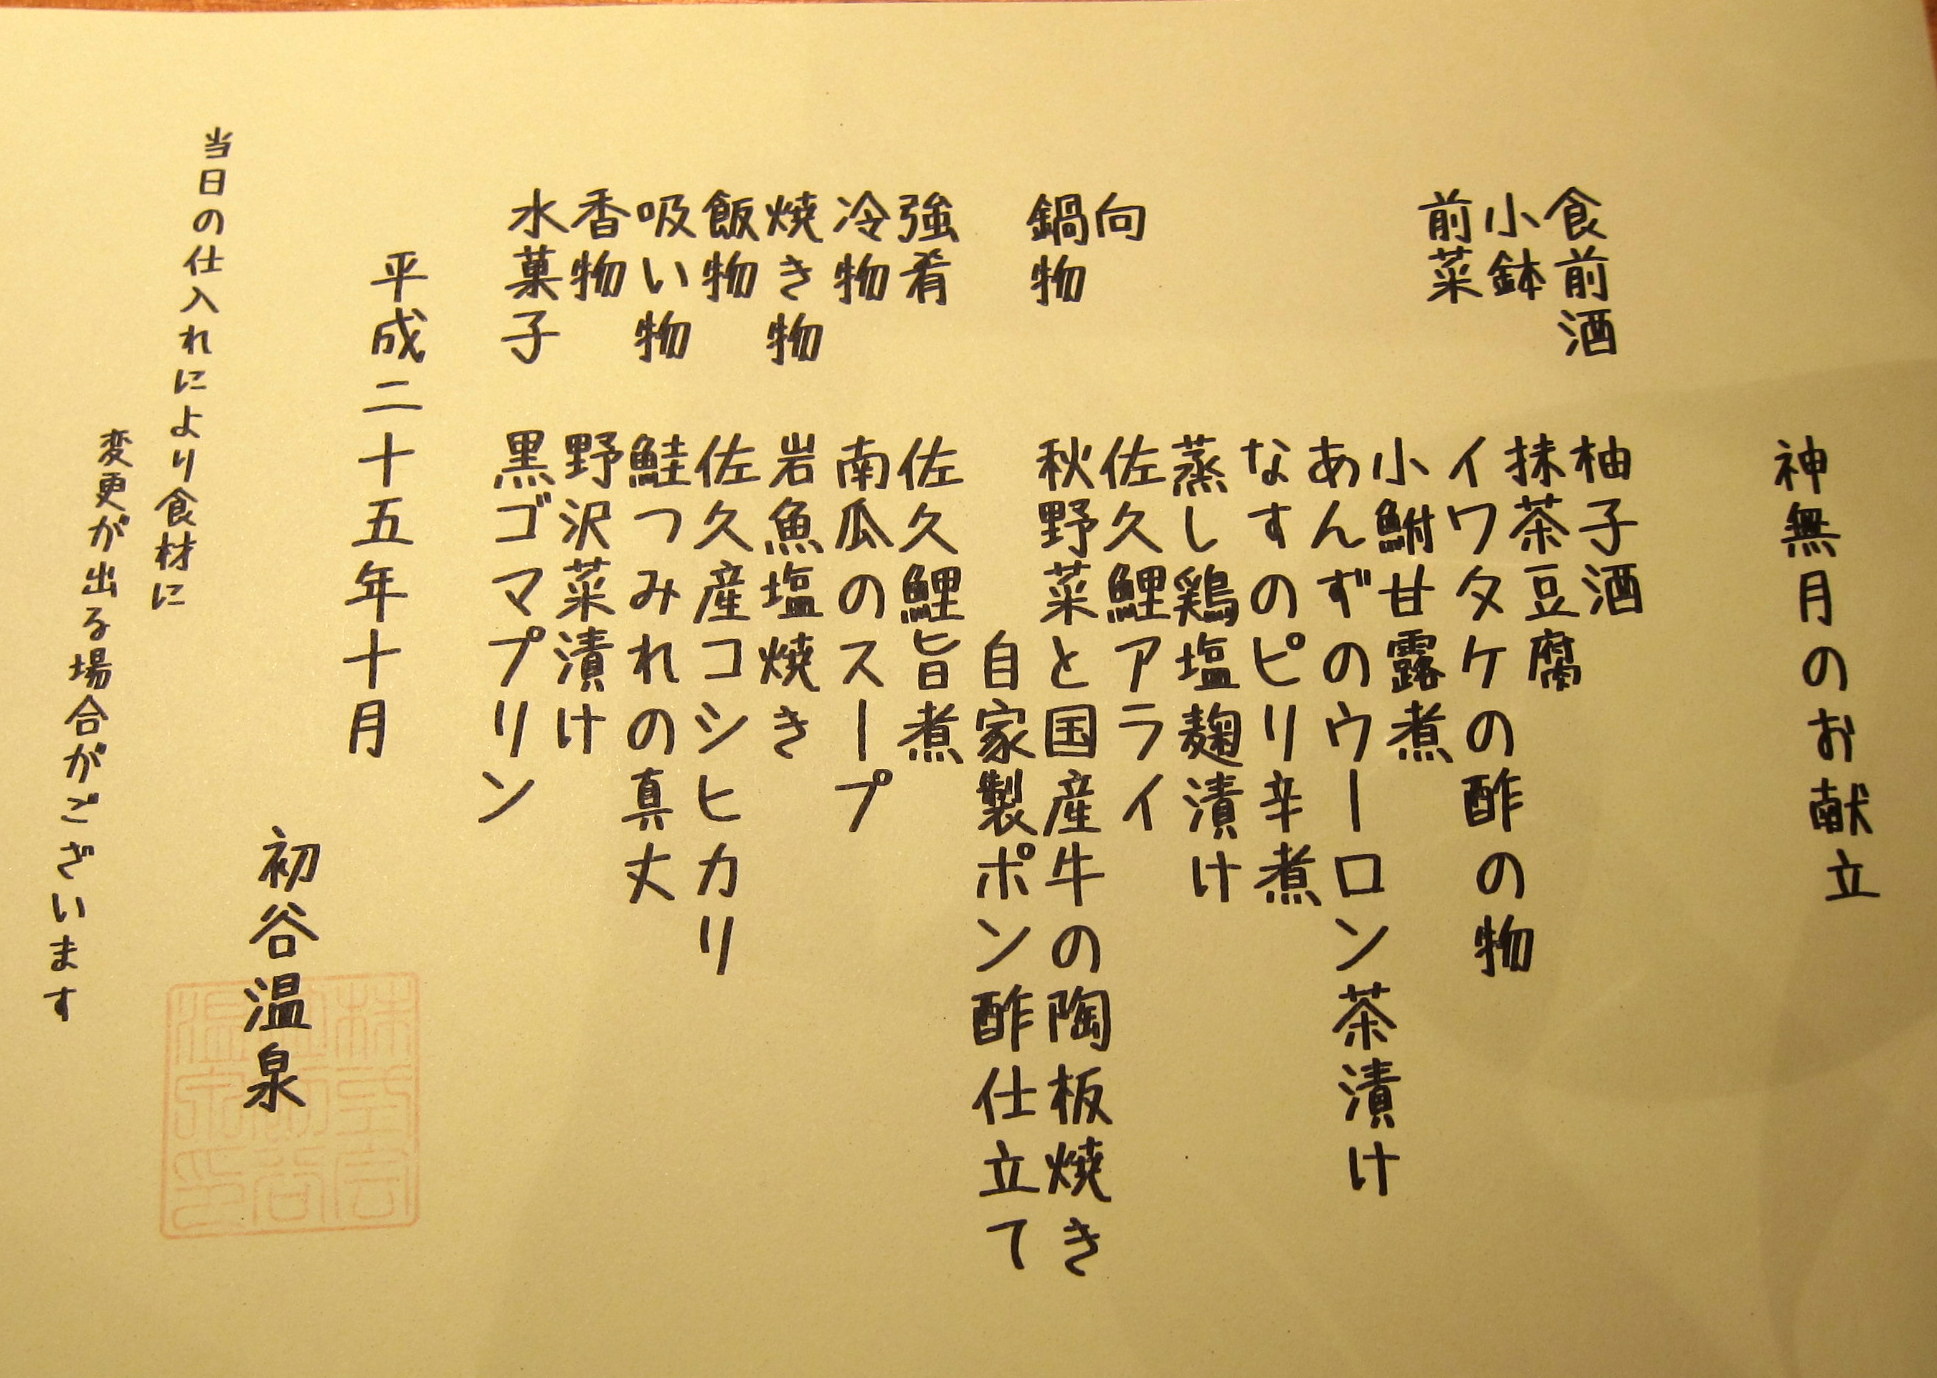 神無月のお献立
食前酒 柚子酒
小鉢 抹茶豆腐
前菜 イワタケの酢の物
小鮒甘露煮
あんずのウーロン茶漬け
なすのピリ辛煮
蒸し鶏塩麹漬け
向 佐久鯉アライ
鍋物 秋野菜と国産牛の陶板焼き
自家製ポン酢仕立て
強肴 佐久鯉旨煮
冷物 南瓜のスープ
焼き物 岩魚塩焼き
飯物 佐久産コシヒカリ
吸い物 鮭つみれの真丈
香物 野沢菜漬け
水菓子 黒ゴマプリン
平成二十五年十月
初谷温泉
株式会
社初谷
温泉印
当日の仕入れにより食材に
変更が出る場合がございます